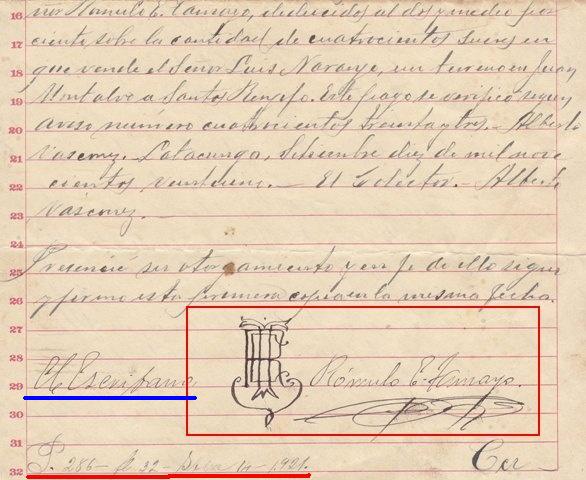 16 ñor Rómulo E. Tamayo, deducidos al dos y medio por
17 ciento sobre la cantidad de cuatrocientos sucres en
18 que vende el Señor Luis Naranjo, un terreno en Juan
19 Montalvo a Santos Rengifo. Este pago se verificó según
20 aviso número cuatrocientos treinta y tres.- Alberto
21 Vásconez. Latacunga, Setiembre diez de mil nove
22 cientos veintiuno.- El Colector.- Alberto
23 Vásconez.-
24
25 Presencié su otorgamiento y en fe de ello signo
26 y firmo esta primera copia en la misma fecha.
27
28
29 El Escribano Rómulo E. Tamayo.
30
31
32 P. 286- 32- 1921.